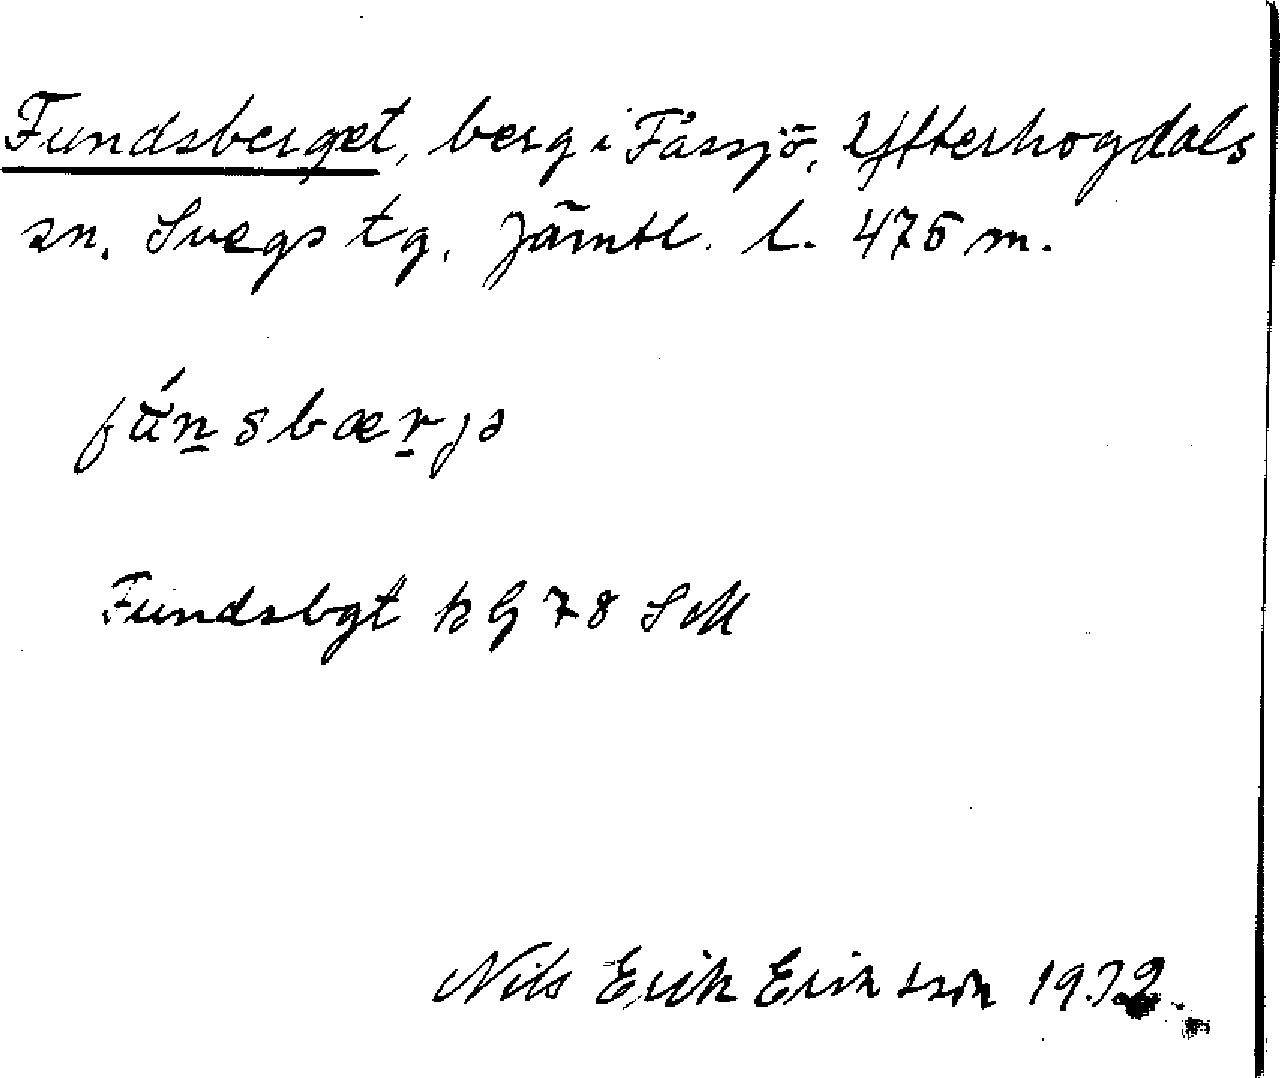 Fundsberget, berg i Fåssjö, Ytterhogdals
sn. Svegs tg. Jämtl. l. 475 m.
fúnsbærjə
Fundsbgt kG 78 SoM
Nils Erik Eriksson 1932.